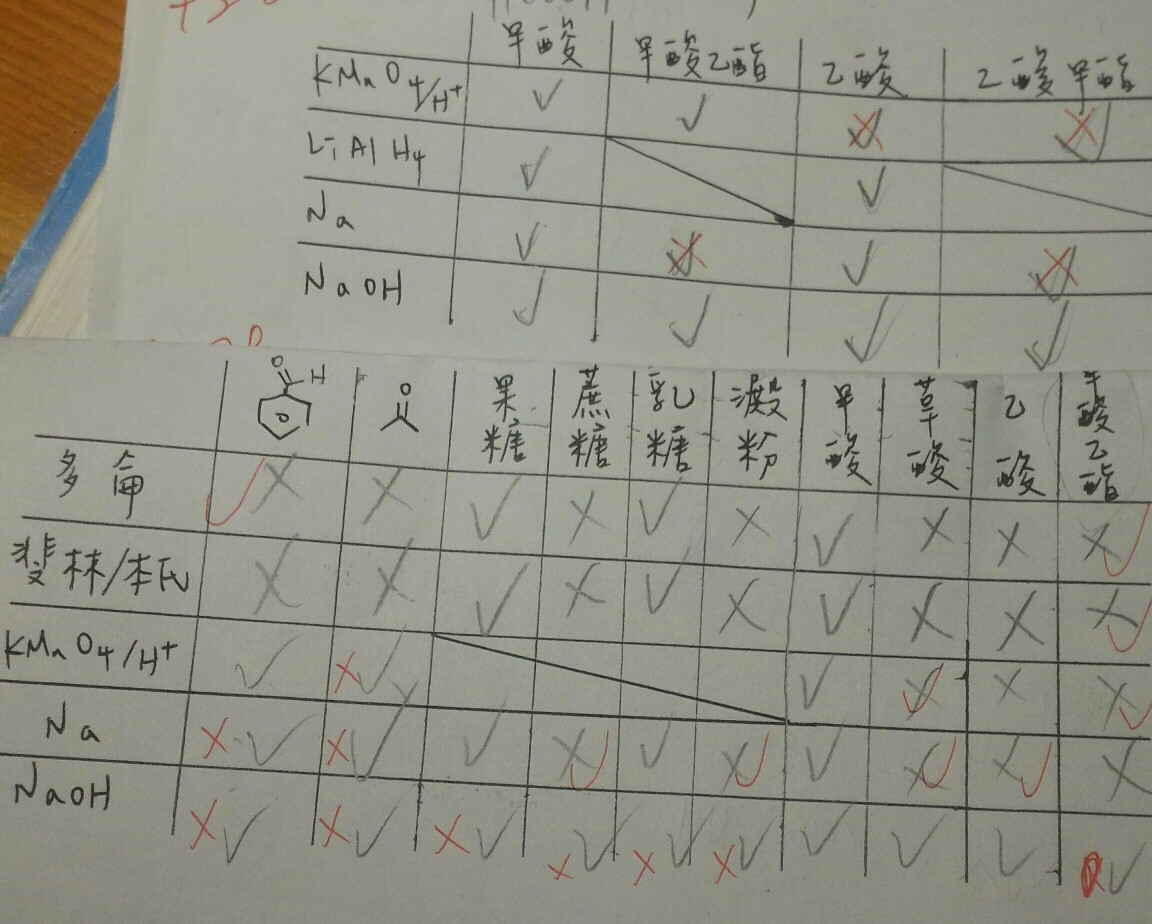 甲酸 甲酸乙酯 乙酸 乙酸甲酯
KMnO4/H+ ✓ ✓ ✗ ✗
LiAlH4 ✓ ✓
Na ✓ ✗ ✓ ✗
NaOH ✓ ✓ ✓ ✓
O H O 果糖 蔗糖 乳糖 澱粉 甲酸 草酸 乙酸 甲酸乙酯
多侖 ✓ ✗ ✗ ✓ ✗ ✓ ✗ ✓ ✗ ✗ ✗ ✓
斐林/本氏 ✗ ✗ ✓ ✗ ✓ ✗ ✓ ✗ ✗ ✗ ✓
KMnO4/H+ ✓ ✗ ✓ ✓ ✓ ✗ ✗ ✓
Na ✗ ✓ ✗ ✓ ✓ ✗ ✓ ✓ ✗ ✓ ✓ ✗ ✓ ✗ ✓ ✗
NaOH ✗ ✓ ✗ ✓ ✗ ✓ ✗ ✓ ✗ ✓ ✗ ✓ ✓ ✓ ✓ ✓